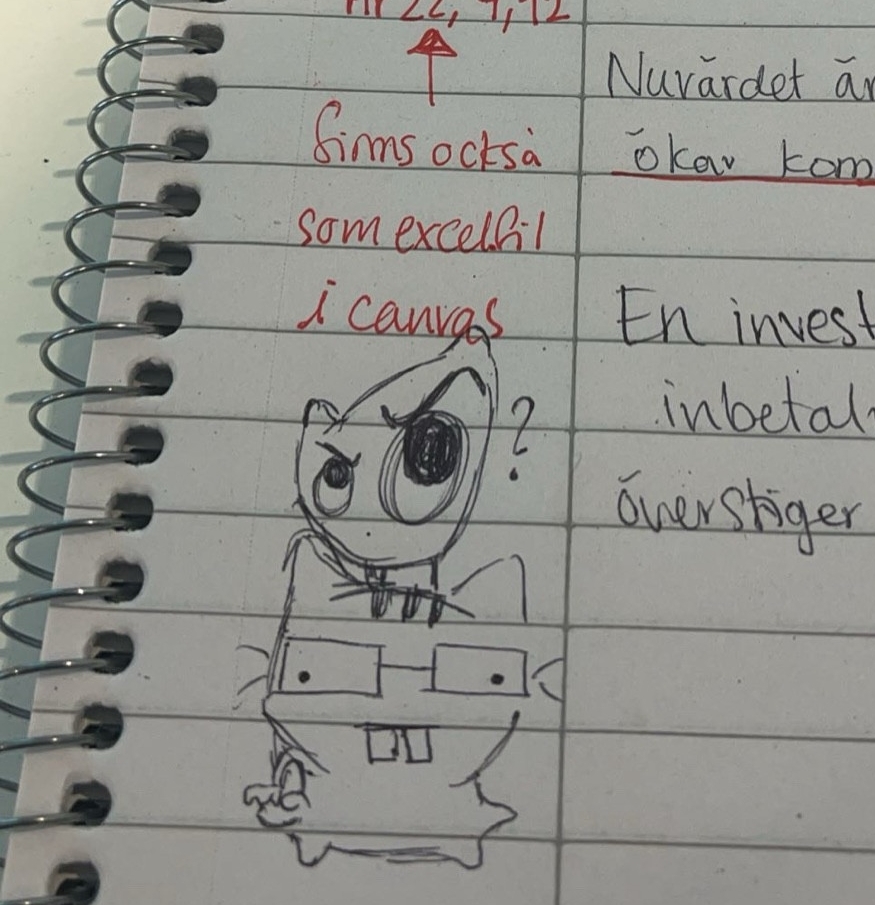 nr 22, 9, 12
finns också
som excelfil
i canvas
?
Nuvärdet är
ökar kom
En invest
inbetal
överstiger